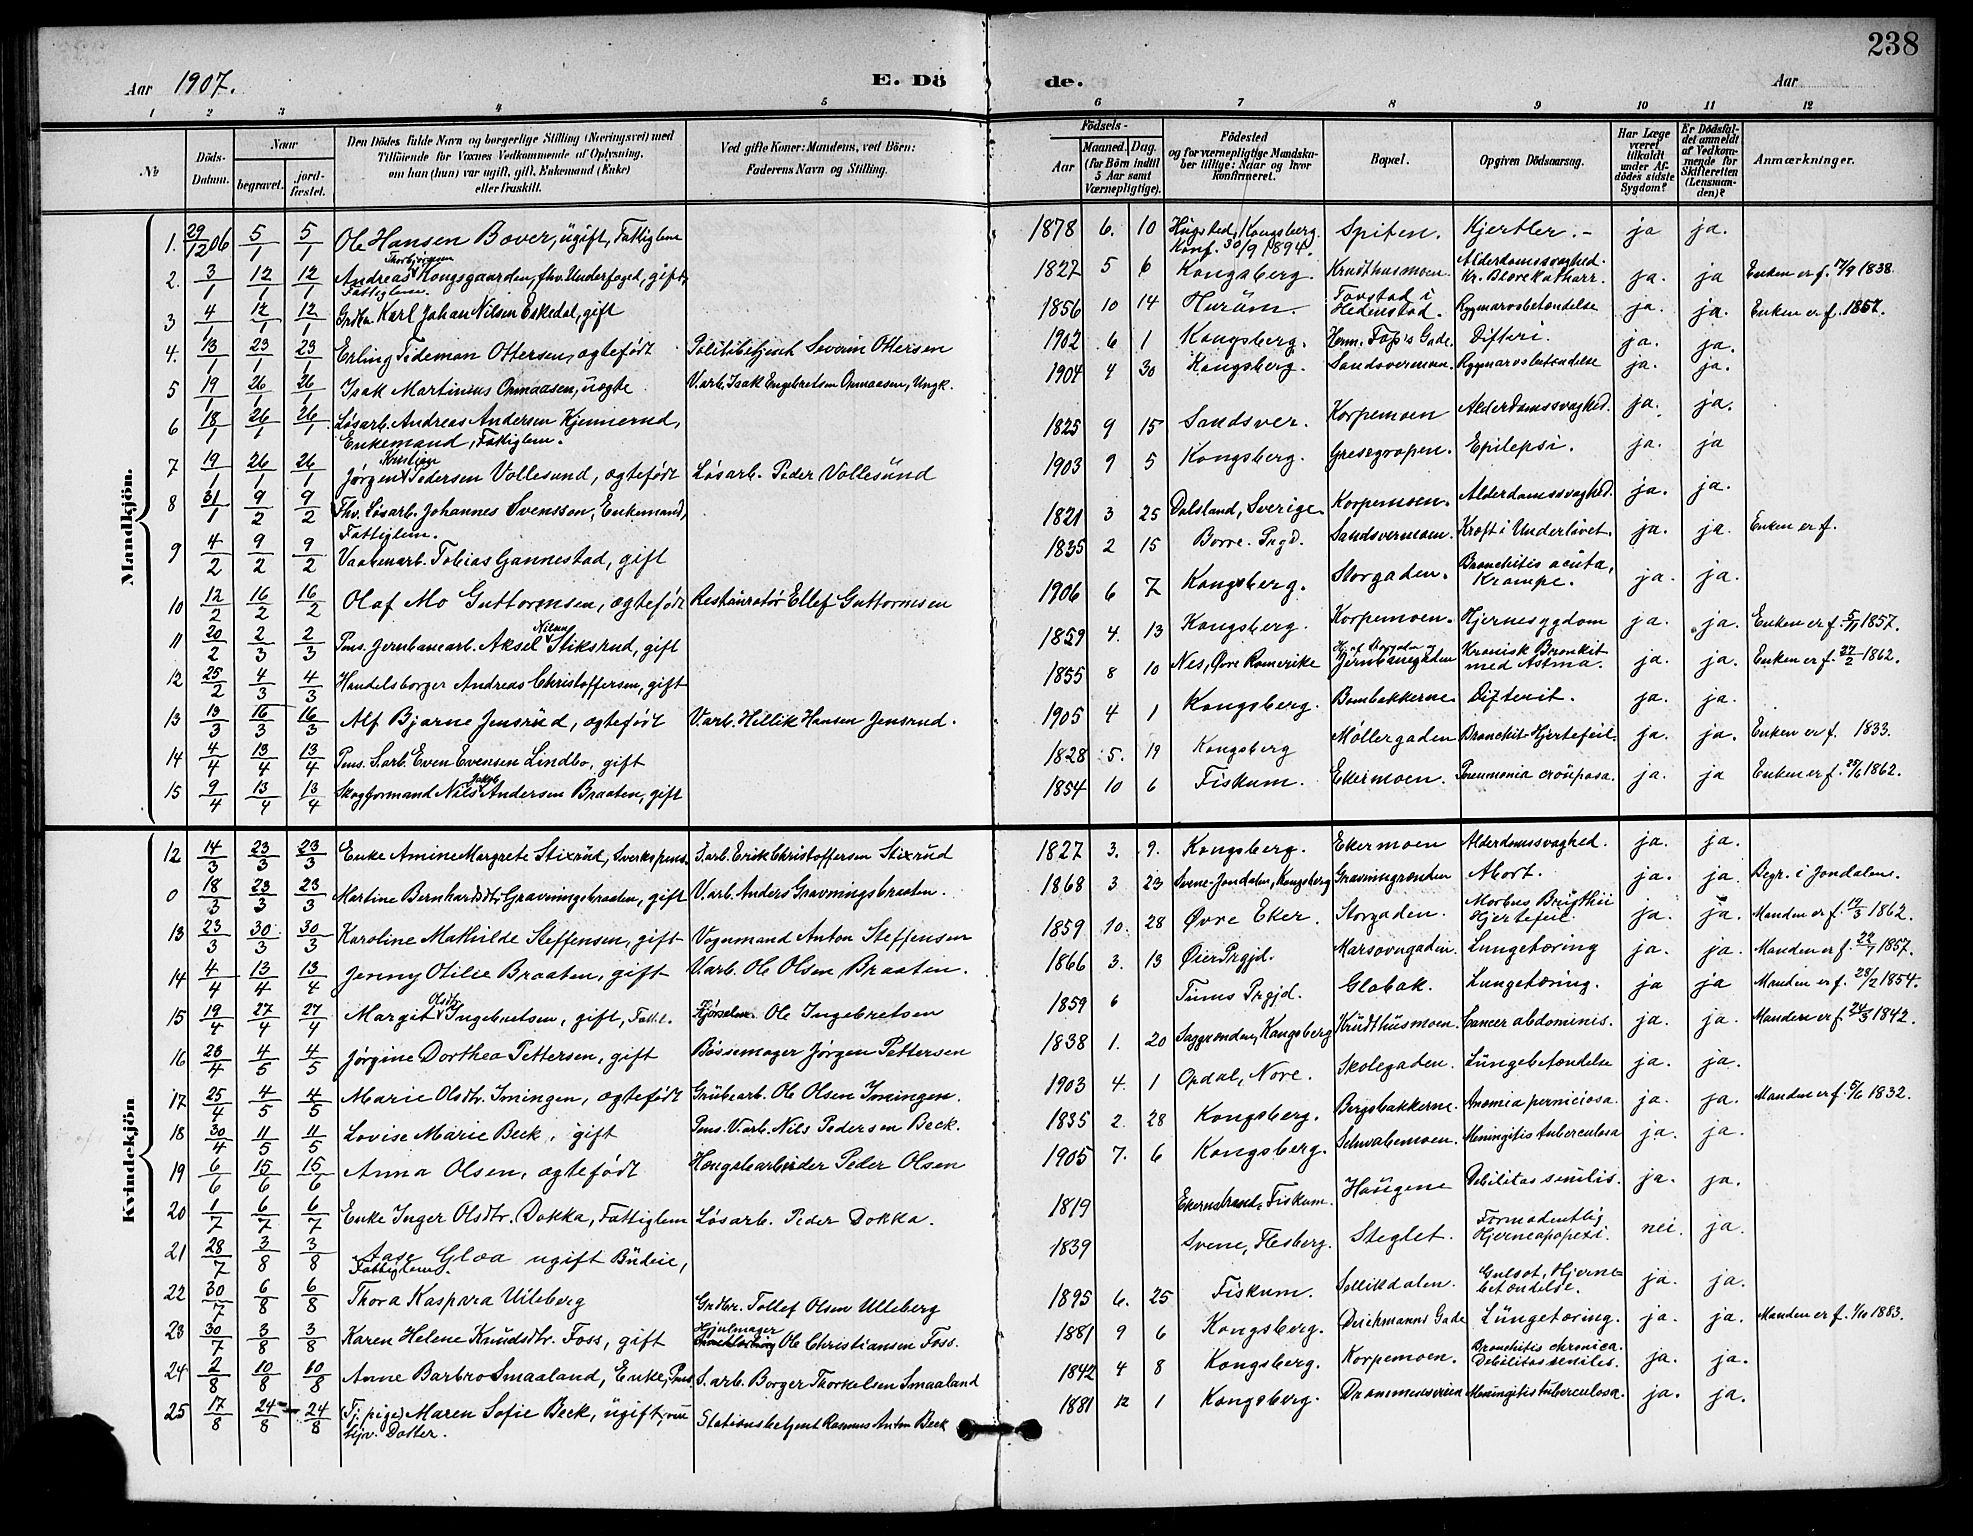 238
Aar 1907. E. Dö de. Aar
1 2 3 4 5 6 7 8 9 10 11 12
No
Döds-Datum.
Naar
begravet.
jord-fæstet.
Den Dödes fulde Navn og borgerlige Stilling (Næringsvei) med
Tilföiende for Voxnes Vedkommende af Oplysning,
om han (hun) var ugift, gift, Enkemand (Enke)
eller fraskilt.
Ved gifte Koner: Mandens, ved Börn:
Faderens Navn og Stilling.
Födsels-
Aar
Maaned. Dag.
(for Börn indtil
5 Aar samt
Værnepligtige).
Födested
og for værnepligtige Mandska-
ber tillige: Naar og hvor
konfirmeret.
Bopæl.
Opgiven Dödsaarsag.
Har Læge
været
tilkaldt
under Af-
dödes sidste
Sygdom?
Er Dödsfal-
det anmeldt
af Vedkom-
mende for
Skifteretten
(Lensman-
den)?
Anmærkninger.
Mandkjön.
1. 29/12 06 5/1 5/1 Ole Hansen Bover, ugift, Fattiglem 1878 6. 10 Kongsberg. Konf. 30/9 1894. Spiten. Kjertler. ja ja.
2. 3/1 12/1 12/1 Andreas Thorbjørnsen Kongsgaarden, fhv. Underfoged, gift, Fattiglem. 1827 5 6 Kongsberg. Krudthusmoen. Alderdomssvaghed. Kr. Blærekatharr. ja. ja Enken er f. 17/9 1838.
3 4/1 12/1 12/1 Grdbr. Karl Johan Nilsen Eskedal, gift 1856 10 14 Hurum. Tovstad i Hedenstad. Rygmarvsbetændelse ja. ja. Enken er f. 1857.
4. 13/1 23/1 23/1 Erling Tideman Ottersen, ægtefødt Politibetjent Severin Ottersen 1902 6 1 Kongsberg. Herm. Foss's Gade. Difteri. ja. ja.
5 19/1 26/1 26/1 Isak Martinius Opmaasen, uægte V. arb. Isak Engebretsen Opmaasen, Ungk. 1904 4 30 Kongsberg. Sandsvermoen. Rygmarvsbetændelse ja. ja.
6 18/1 26/1 26/1 Løsarb. Andreas Andersen Kjennerud, Enkemand, Fattiglem. 1825 9 15 Sandsver. Korpemoen Alderdomssvaghed. ja. ja.
7 19/1 26/1 26/1 Jørgen Kristian Pedersen Vollesund, ægtefødt Løsarb. Peder Vollesund 1903 9 5 Kongsberg. Græsegropen. Epilepsi. ja. ja
8 31/1 9/2 9/2 Fhv. Løsarb. Johannes Svensson, Enkemand, Fattiglem. 1821 3 25 Dalsland, Sverige. Korpemoen. Alderdomssvaghed. ja. ja.
9 4/2 9/2 9/2 Vaabenarb. Tobias Gannestad, gift 1835 2 15 Borre. Prgd. Sandsvermoen. Kræft i Underlivet. ja. ja. Enken er f.
10 12/2 16/2 16/2 Olaf Mo Guttormsen, ægtefødt Restauratør Ellef Guttormsen 1906 6 7 Kongsberg. Storgaden. Bronchitis acuta, Krampe. ja. ja.
11 20/2 2/3 2/3 Pens. Jernbanearb. Aksel Nilsen Stiksrud, gift 1859 4. 13 Kongsberg. Korpemoen. Hjernesygdom ja. ja. Enken er f. 5/11 1857.
12 25/2 4/3 4/3 Handelsborger Andreas Christoffersen, gift 1855 8 10 Nes, Øvre Romerike Jernbanegaden Kronisk Bronkit med Astma. ja. ja. Enken er f. 27/2 1862.
13 13/3 16/3 16/3 Alf Bjarne Jensrud, ægtefødt V. arb. Hellik Hansen Jensrud. 1905 4 1 Kongsberg. Bombakkerne Difterit. ja. ja.
14 4/4 13/4 13/4 Pens. S. arb. Even Evensen Lindbo, gift 1828 5. 19 Kongsberg Møllergaden Bronchit Hjertefeil. ja. ja. Enken er f. 1833.
15 9/4 13/4 13/4 Skogformand Nils Jakob Andersen Braaten, gift 1854 10 6 Fiskum. Ekermoen. Pneumonia croupøsa. ja. ja Enken er f. 20/6 1862.
Kvindekjön
12 14/3 23/3 23/3 Enke Amine Margrete Stixrud, Sverkspens. S. arb. Erik Christoffersen Stixrud 1827 3. 9. Kongsberg. Ekermoen Alderdomssvaghed. ja. ja.
0 18/3 23/3 23/3 Martine Bernhardsdtr. Gravningsbraaten, gift V. arb. Anders Gravningsbraaten. 1868 3 23 Svene-Jondalen, Kongsberg Gravningrenden Abort. ja. ja. Begr. i Jondalen.
13 23/3 30/3 30/3 Karoline Mathilde Steffensen, gift Vognmand Anton Steffensen 1859 10. 28 Øvre Eker. Storgaden. Morbus Brigthii Hjertefeil. ja. ja. Manden er f. 17/3 1862.
14 4/4 13/4 13/4 Jenny Otilie Braaten, gift V. arb. Ole Olsen Braaten. 1866 3. 13 Øier Prgjd. Karsovngaden. Lungetæring ja. ja. Manden er f. 29/7 1857.
15 19/4 27/4 27/4 Margit Olsdtr. Ingebretsen, gift, Fattl. Ole Ingebretsen 1859 6 Tinns Prgjd. Glabak. Lungetæring. ja ja Manden er f. 28/2 1854.
16 23/4 4/5 4/5 Jørgine Dorthea Pettersen, gift Bøssemager Jørgen Pettersen 1838 1. 20 Saggrenden, Kongsberg Krudthusmoen. Cancer abdominis. ja. ja. Manden er f. 24/3 1842.
17 25/4 4/5 4/5 Marie Olsdtr. Imingen, ægtefødt Grubearb. Ole Olsen Imingen. 1903 4. 1 Opdal, Nore. Skolegaden. Lungebetændelse ja. ja.
18 30/4 11/5 11/5 Lovise Marie Beck, gift Pens. V. arb. Nils Pedersen Beck. 1835 2. 28 Kongsberg. Bergsbakkerne. Anæmia perniciosa. ja. ja. Manden er f. 5/6 1832.
19 6/6 15/6 15/6 Anna Olsen, ægtefødt Peder Olsen 1905 7. 6 Kongsberg. Schwabemoen. Meningitis tuberculosa ja. ja.
20 1/7 6/7 6/7 Enke Inger Olsdtr. Dokka, Fattiglem Løsarb. Peder Dokka. 1819 Fiskum. Haugene Debilitas senilis. ja. ja.
21 28/7 3/8 3/8 Aase Gloa ugift Budeie, Fattiglem. 1839 Svene, Flesberg. Steglet. Formodentlig Hjerneapopexi. nei. ja.
22 30/7 6/8 6/8 Thora Kaspara Ulleberg Grdbr. Tollef Olsen Ulleberg 1895 6. 25 Fiskum. Sellikdalen. Gulsot, Hjerne-betændelse. ja. ja.
23 30/7 3/8 3/8 Karen Helene Knudsdtr. Foss, gift Hjulmager Ole Christiansen Foss. 1881 9 6 Kongsberg. Deichmanns Gade Lungetæring. ja. ja. Manden er f. 1/10 1883.
24 2/8 10/8 10/8 Anne Barbro Smaaland, Enke, Pens. S. arb. Borger Thorkelsen Smaaland 1842 4 8 Kongsberg. Korpemoen. Bronchitis chronica. Debilitas senilis. ja. ja.
25 17/8 24/8 24/8 (Tj. pige) Maren Sofie Beck, ugift, Datter. Stationsbetjent Rasmus Anton Beck 1881 12 1 Kongsberg. Drammensveien Meningitis tuberculosa. ja. ja.